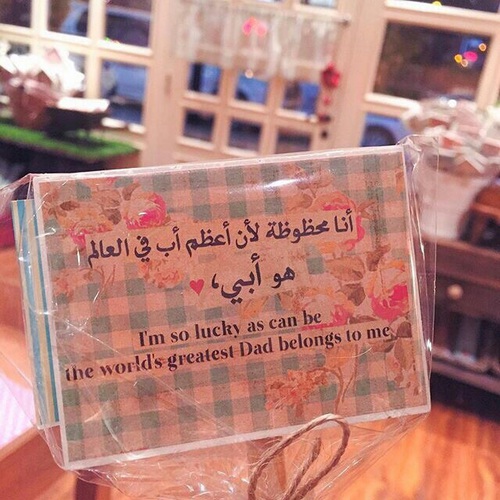 أنا محظوظة لأن أعظم أب في العالم
هو أبي،
I'm so lucky as can be
the world's greatest Dad belongs to me